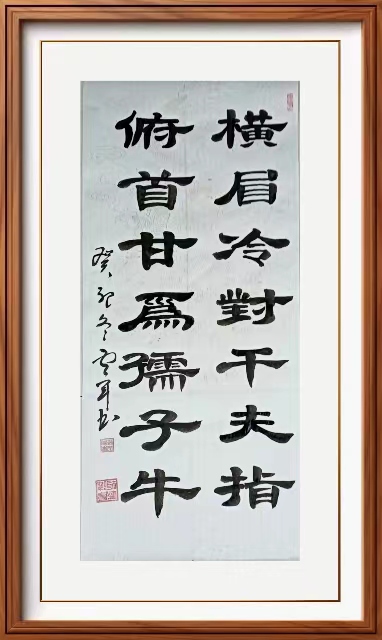 橫眉冷對千夫指
俯首甘爲孺子牛
癸卯冬书